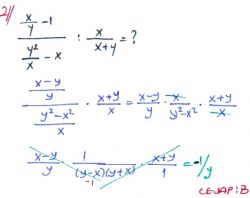 2// (x/y - 1)/(y²/x - x) : x/(x+y) = ?
((x-y)/y)/((y²-x²)/x) · (x+y)/x = (x-y)/y · x/(y²-x²) · (x+y)/x
(x-y)/y · 1/((y-x)(y+x)) · (x+y)/1 = -1/y
-1
CEVAP:B